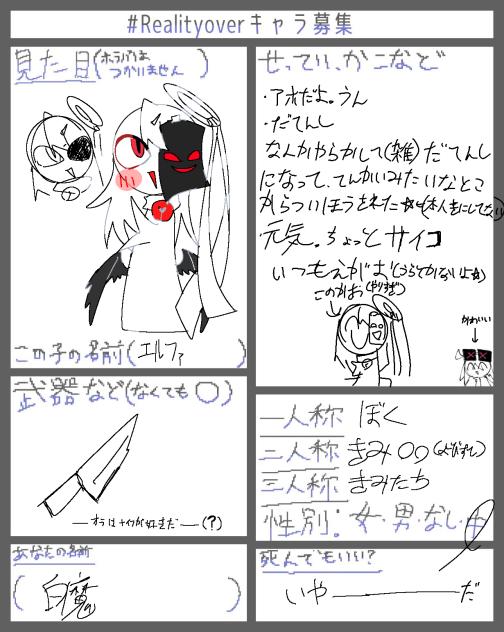 #Realityoverキャラ募集
見た目(ホラバは
つかいません)
この子の名前(エルファ)
武器など(なくても〇)
(?)
あなたの名前
(白魔)
せってい、かこなど
・アホだよ。うん
・だてんし
なんかやらかして(雑)だてんし
になって、てんかいみたいなとこ
からついほうされた
・元気。ちょっとサイコ
いつもえがお
このかお(やりすぎ)
かわいい
一人称 ぼく
二人称 きみ 〇〇(よびすて)
三人称 きみたち
性別:女・男・なし・
死んでもいい?
いや――だ